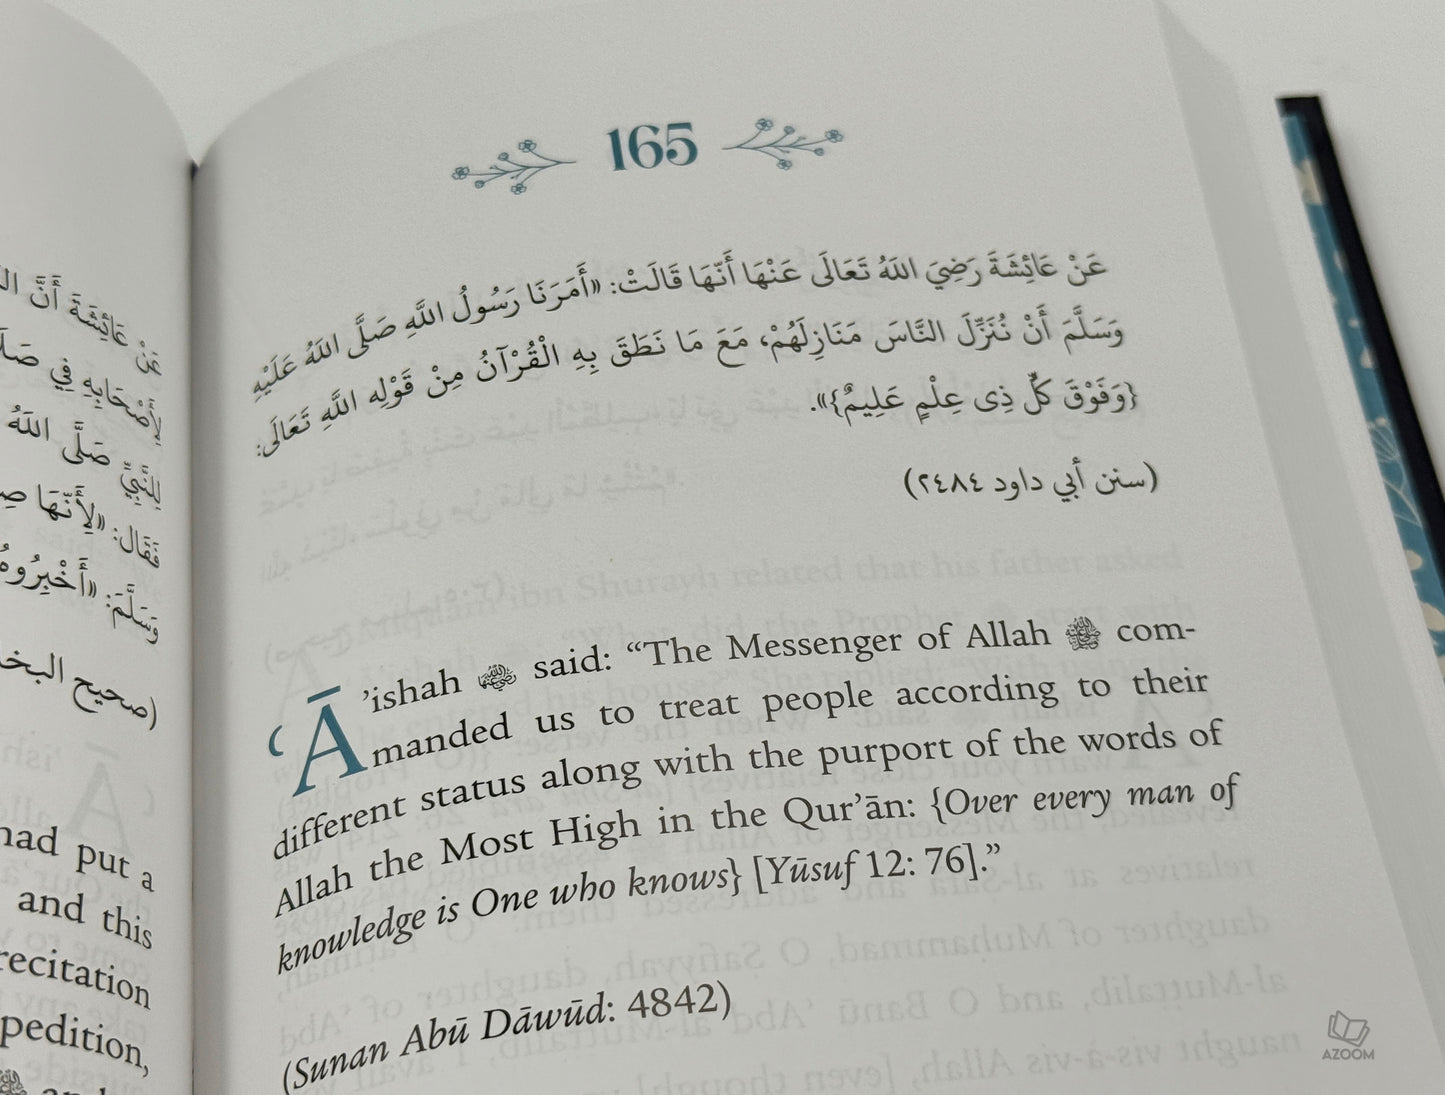 عَنْ عَائِشَةَ أَنَّ
لِأَصْحَابِهِ فِي
لِلنَّبِيِّ صَلَّى اللهُ
فَقَالَ: «لِأَنَّهَا
وَسَلَّمَ: «أَخْبِرُوهُ
(صحيح
had put a
and this
recitation
pedition,
165
عَنْ عَائِشَةَ رَضِيَ اللهُ تَعَالَى عَنْهَا أَنَّهَا قَالَتْ: «أَمَرَنَا رَسُولُ اللَّهِ صَلَّى اللهُ عَلَيْهِ
وَسَلَّمَ أَنْ نُنَزِّلَ النَّاسَ مَنَازِلَهُمْ، مَعَ مَا نَطَقَ بِهِ الْقُرْآنُ مِنْ قَوْلِهِ اللَّهِ تَعَالَى:
{وَفَوْقَ كُلِّ ذِى عِلْمٍ عَلِيمٌ}».
(سنن أبي داود ٢٤٨٤)
ʿĀ’ishah ﵂ said: “The Messenger of Allah ﷺ com-
manded us to treat people according to their
different status along with the purport of the words of
Allah the Most High in the Qur’ān: {Over every man of
knowledge is One who knows} [Yūsuf 12: 76].”
(Sunan Abū Dāwūd: 4842)
AZOOM